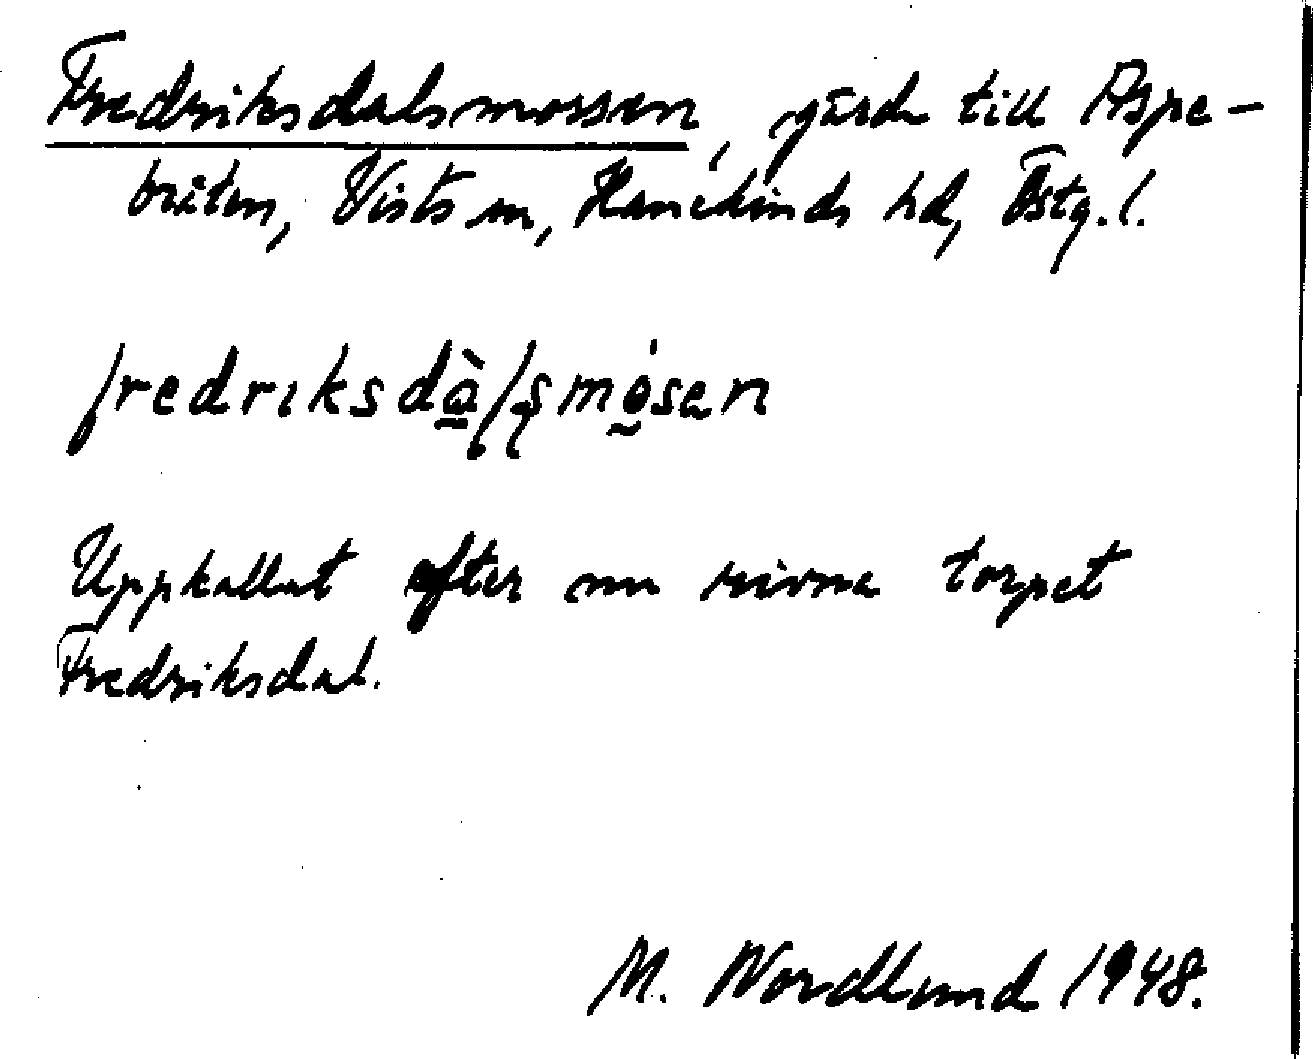 Fredriksdalsmossen, gärde till Aspe-
bråten, Vists sn, Hanekinds hd, Östg.l.
fredriksdà̱lʂmó̰sen
Uppkallat efter nu rivna torpet
Fredriksdal.
M. Nordlund 1948.